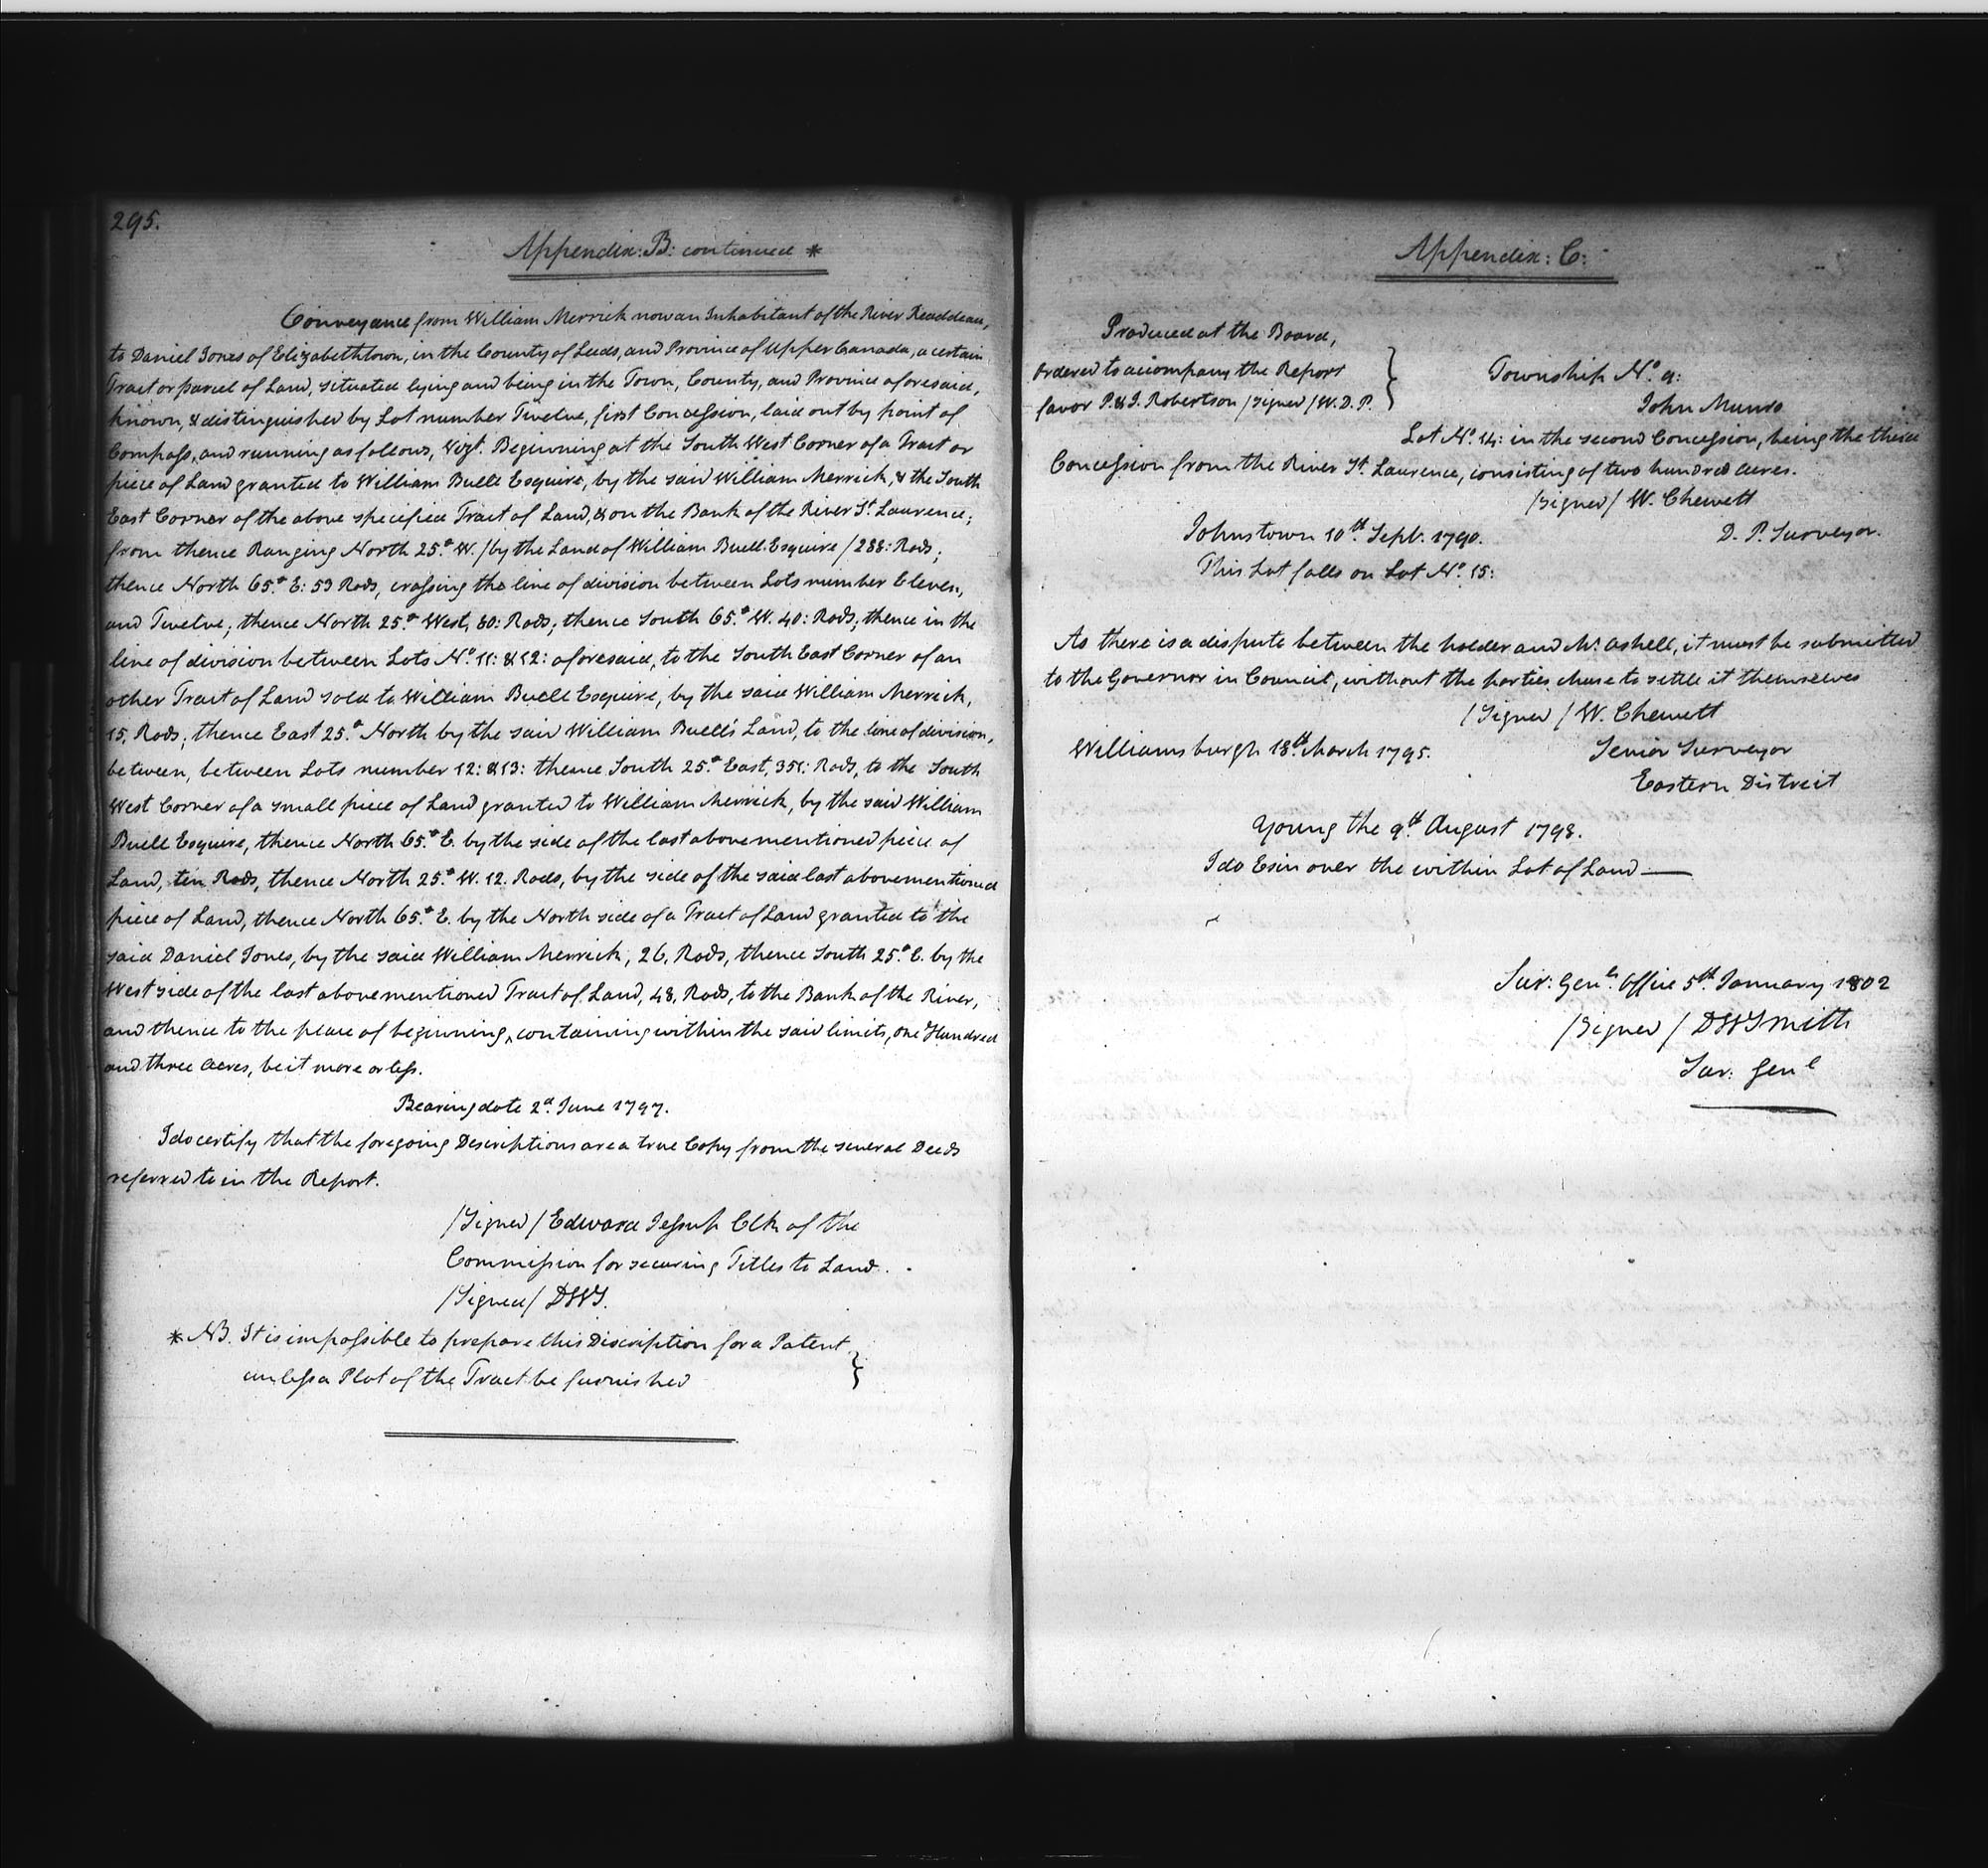 295.
Appendix: B: continued *
Conveyance from William Merrick now an Inhabitant of the River Readdeau,
to Daniel Jones of Elizabethtown, in the County of Leeds, and Province of Upper Canada, a certain
Tract or parcel of Land, situated lying and being in the Town, County, and Province aforesaid,
known, & distinguished by Lot number Twelve, first Concession, laid out by point of
Compass, and running as follows, Vizt. Beginning at the South West Corner of a Tract or
piece of Land granted to William Buell Esquire, by the said William Merrick, & the South
East Corner of the above specified Tract of Land, & on the Bank of the River St. Laurence;
from thence Ranging North 25.° W. / by the Land of William Buell Esquire / 288: Rods;
thence North 65.° E: 53 Rods, crossing the line of division between Lots number Eleven,
and Twelve; thence North 25.° West, 80: Rods; thence South 65.° W. 40: Rods; thence in the
line of division between Lots No. 11: & 12: aforesaid, to the South East Corner of an
other Tract of Land sold to William Buell Esquire, by the said William Merrick,
15, Rods; thence East 25.° North by the said William Buell's Land, to the line of division,
between, between Lots number 12: & 13: thence South 25.° East, 351: Rods, to the South
West Corner of a small piece of Land granted to William Merrick, by the said William
Buell Esquire, thence North 65.° E. by the side of the last abovementioned piece of
Land, ten Rods, thence North 25.° W. 12 Rods, by the side of the said last abovementioned
piece of Land, thence North 65.° E. by the North side of a Tract of Land granted to the
said Daniel Jones, by the said William Merrick, 26, Rods, thence South 25.° E. by the
West side of the last abovementioned Tract of Land, 48, Rods, to the Bank of the River,
and thence to the place of beginning, containing within the said limits, one Hundred
and three Acres, be it more or less.
Bearing date 2d. June 1797.
I do certify that the foregoing Descriptions are a true Copy from the several Deeds
referred to in the Report.
/Signed/ Edward Jessup Clk of the
Commission for securing Titles to Land.
/Signed/ DWS.
* NB. It is impossible to prepare this Discription for a Patent
unless a Plot of the Tract be furnished }
Appendix: C:
Produced at the Board,
ordered to accompany the Report
favor P. & J. Robertson /signed/ W. D. P. }
Township No. 9:
John Munro
Lot No. 14: in the second Concession, being the third
Concession from the River St. Laurence, consisting of two hundred acres.
/Signed/ W. Chewett
Johnstown 10th. Sept. 1790.
D. P. Surveyor.
This Lot falls on Lot No. 15:
As there is a dispute between the holder and Mr. Ashell, it must be submitted
to the Governor in Council, without the parties chuse to settle it themselves
/Signed/ W. Chewett
Williamsburgh 18th. March 1795.
Senior Surveyor
Eastern District
Young the 9th. August 1798.
I do Esin over the within Lot of Land —
Sur: Genls. Office 5th. January 1802
/Signed/ DWSmith
Sur: Genl